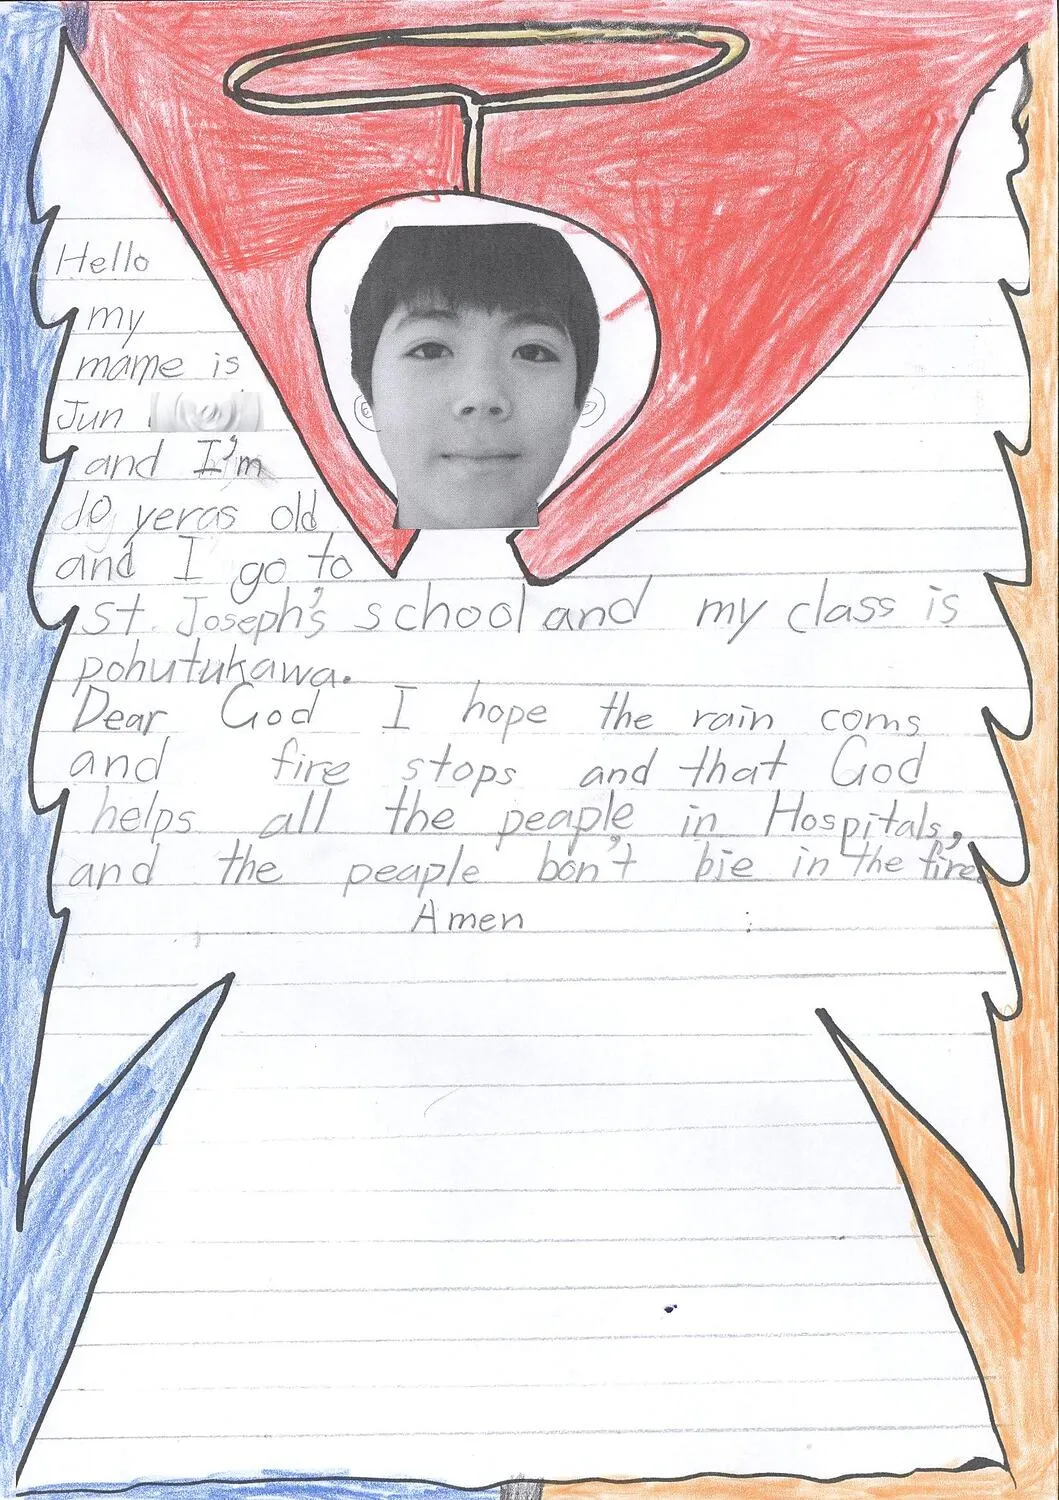 Hello
my
mame is
Jun
and I'm
10 yeras old
and I go to
St. Joseph's school and my class is
pohutukawa.
Dear God I hope the rain coms
and fire stops and that God
helps all the peaple in Hospitals,
and the peaple bon't bie in the fire.
Amen